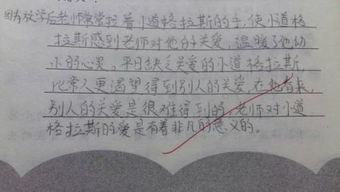 因为放学后老师常常拉着小道格拉斯的手,使小道格
拉斯感到老师对他的关爱,温暖了他幼
小的心灵,平日缺乏关爱的小道格拉斯
比常人更渴望得到别人的关爱,在他看来,
别人的关爱是很难得到的,老师对小道
格拉斯的爱是有着非凡的意义的。